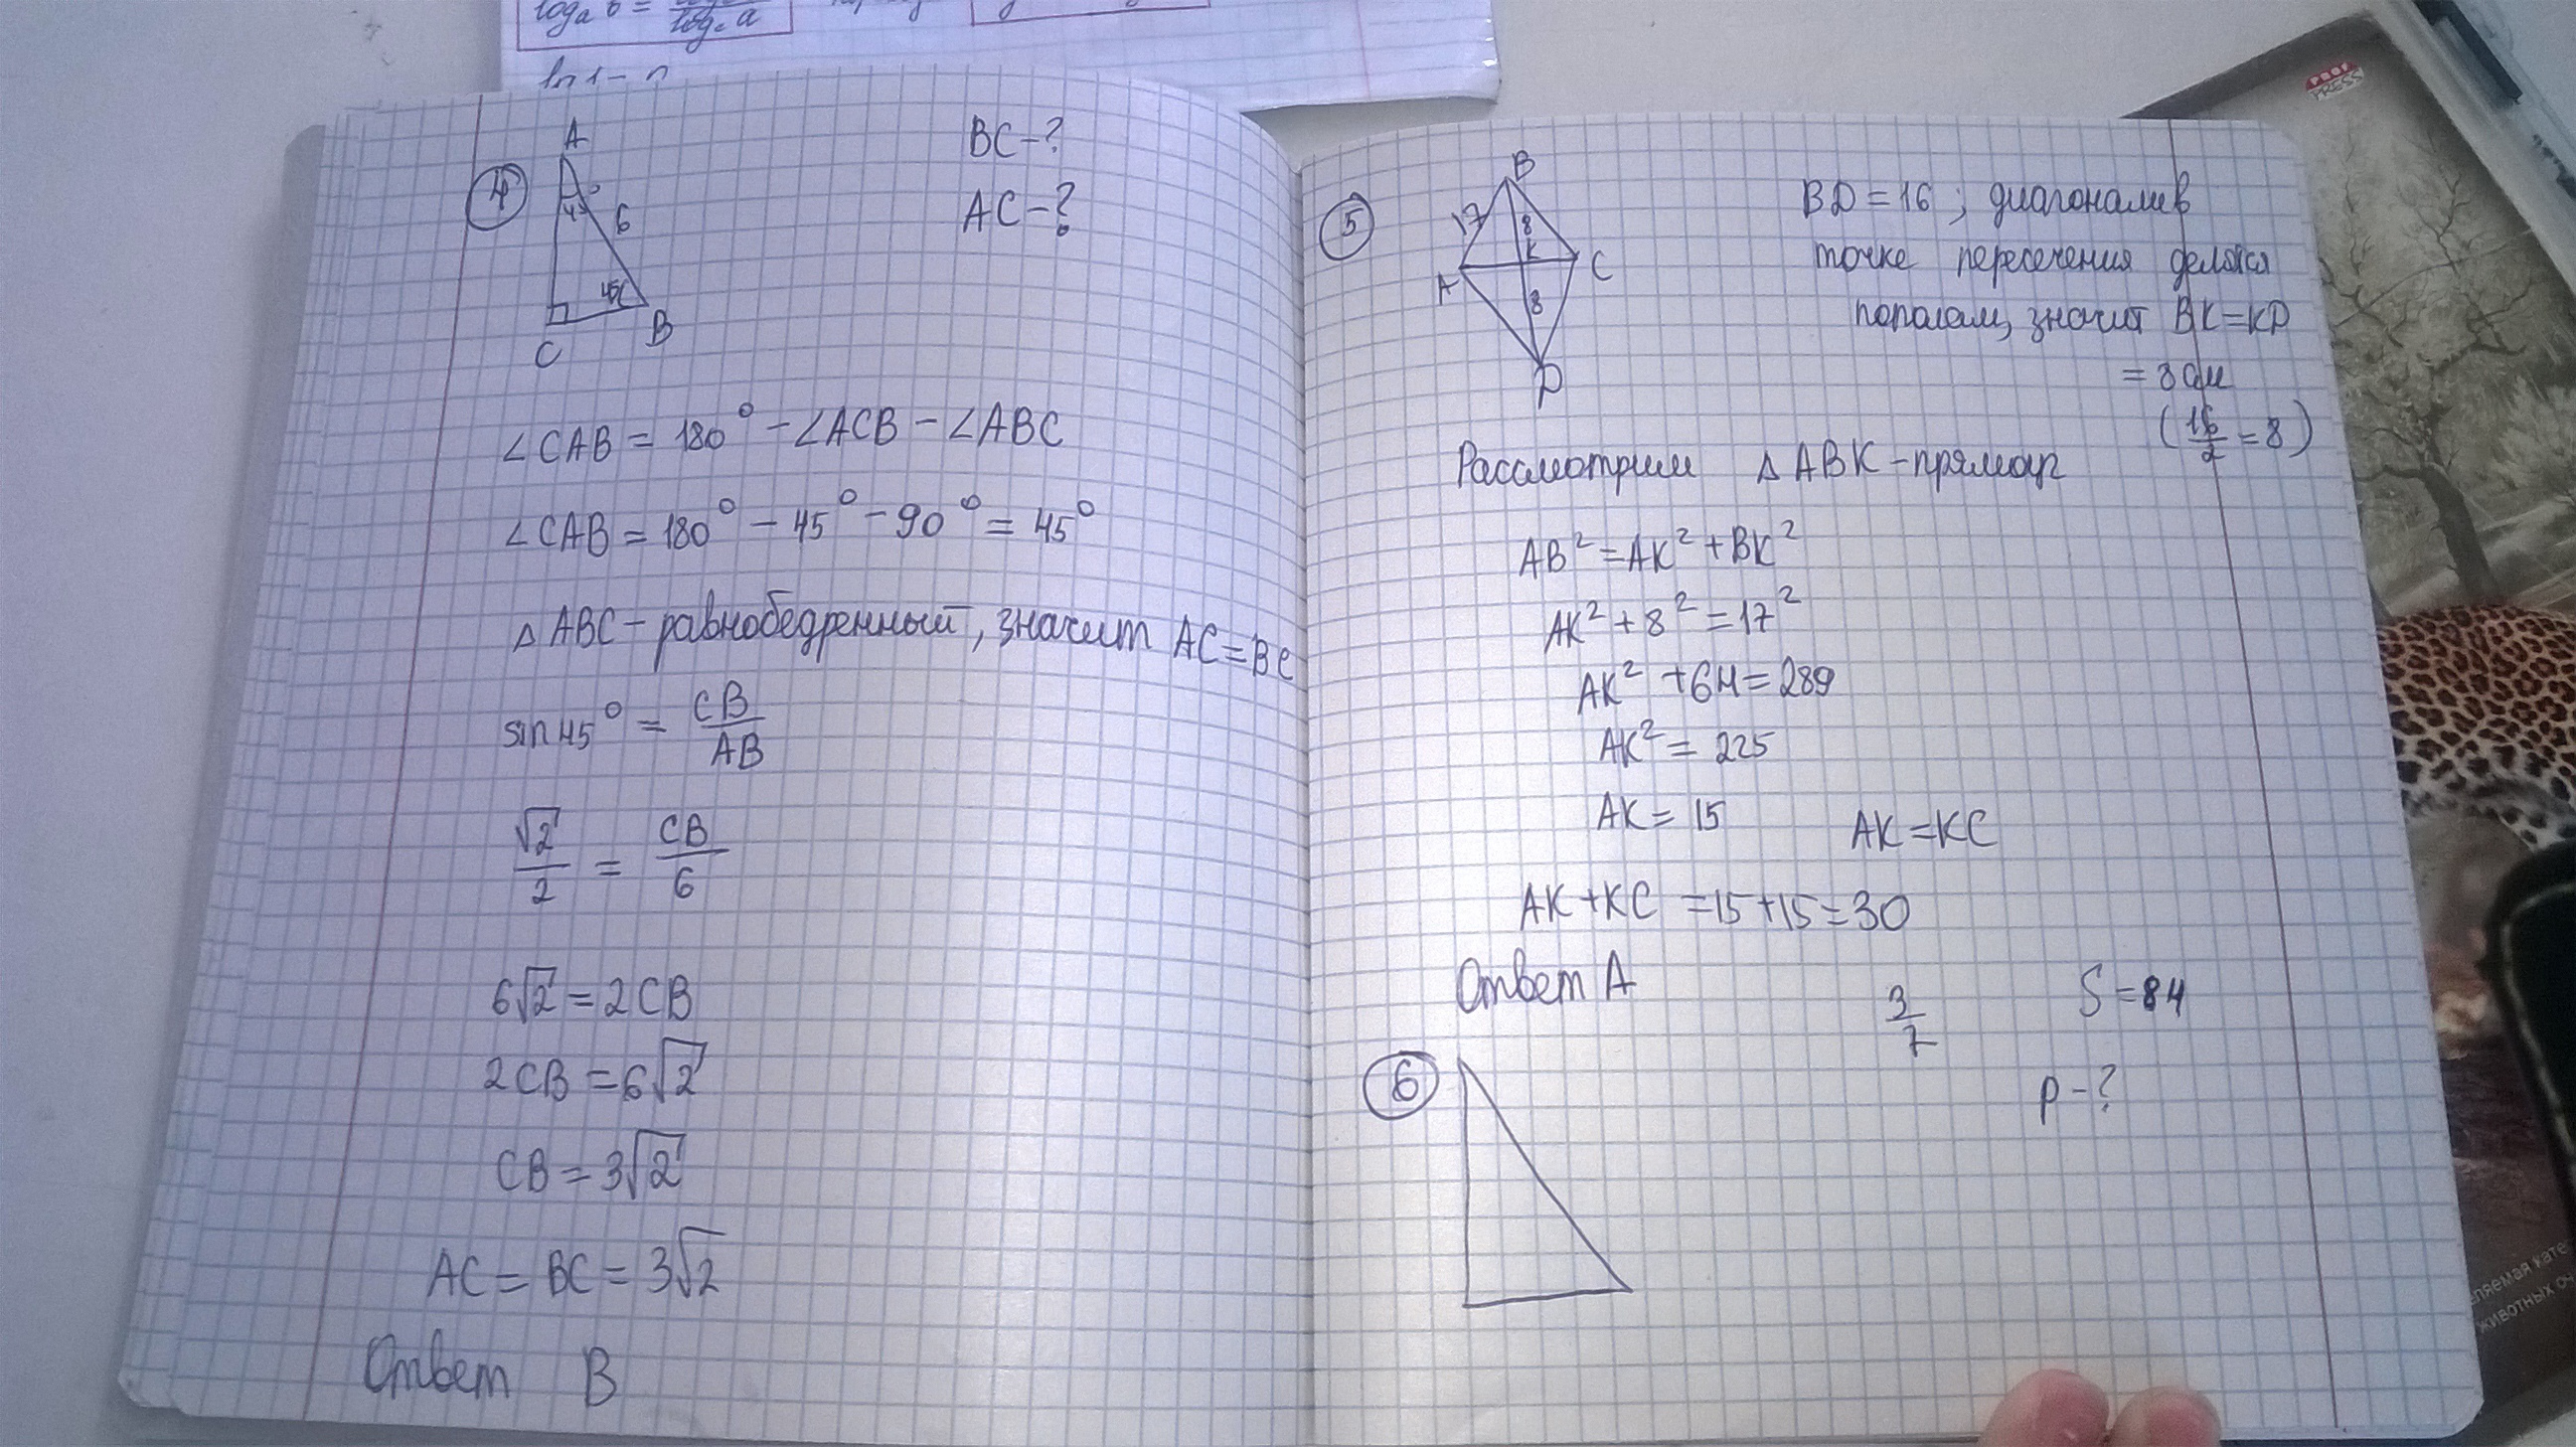 log_a b = / log_c a
ln 1 - 0
PROF
PRESS
4
A
45°
6
45
C
B
BC-?
AC-?
∠CAB = 180° - ∠ACB - ∠ABC
∠CAB = 180° - 45° - 90° = 45°
△ ABC - равнобедренный, значит AC = BC
sin 45° = CB / AB
√2 / 2 = CB / 6
6√2 = 2CB
2CB = 6√2
CB = 3√2
AC = BC = 3√2
Ответ B
5
B
17
8
K
A
C
8
D
BD = 16 ; диагонали в
точке пересечения делятся
пополам, значит BK = KD
= 8 см
(16/2 = 8)
Рассмотрим △ ABK - прямоуг
AB² = AK² + BK²
AK² + 8² = 17²
AK² + 64 = 289
AK² = 225
AK = 15 AK = KC
AK + KC = 15 + 15 = 30
Ответ A
3/7
S = 84
P - ?
6